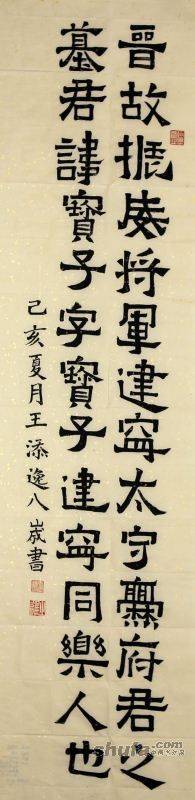 晋故振威将軍建寧太守爨府君之
墓君諱寶子字寶子建寧同樂人也
己亥夏月王添逸八歲書
shufa.com